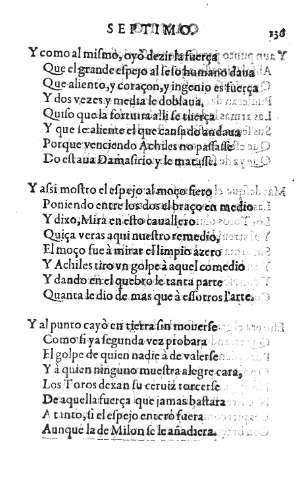 SEPTIMO. 136
Y como al mismo, oyò dezir la fuerça
Que el grande espejo al seso humano daua
Que aliento, y coraçon, y ingenio es fuerça
Y dos vezes y media le doblaua,
Quiso que la fortuna alli se tuerça
Y que se aliente el que cansado andaua
Porque venciendo Achiles no passasse
Do estaua Damasirio y le matasse.
Y assi mostro el espejo al moço fiero
Poniendo entre los dos el braço en medio
Y dixo, Mira en esto cauallero
Quiça veras aqui nuestro remedio,
El moço fue à mirar el limpio azero
Y Achiles tiro vn golpe à aquel comedio
Y dando en el quebro le tanta parte
Quanta le dio de mas que à essotros l'arte.
Y al punto cayò en tierra sin mouerse
Como si ya segunda vez probara
El golpe de quien nadie à de valerse
Y à quien ninguno muestra alegre cara,
Los Toros dexan su ceruiz torcerse
De aquella fuerça que jamas bastara
A tanto, si el espejo entero fuera
Aunque la de Milon se le añadiera.